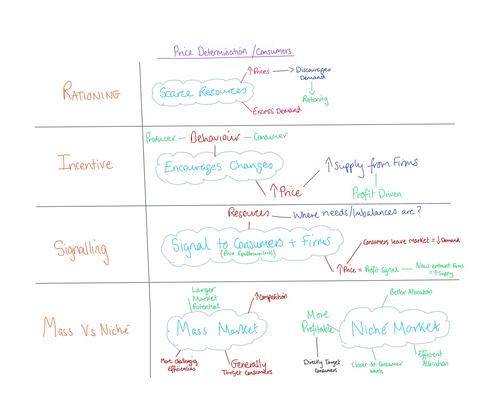 Price Determination /Consumers
RATIONING
Scarce Resources
↑Prices
Discourages
Demand
Rationing
Excess Demand
INCENTIVE
Producer
Behaviour
Consumer
Encourages Changes
↑Price
↑Supply from Firms
Profit Driven
SIGNALLING
Resources
Where needs/Imbalances are?
Signal to Consumers + Firms
(Price Equilibrium
↑Price = Profit signal
Consumers leave market = ↓Demand
New entrant Firms
= ↑Supply
MASS VS NICHÉ
Larger
Market
Potential
↑Competition
Mass Market
More challenging
Efficiencies
Generally
Target Consumers
More
Profitable
Directly Target
Consumers
Better Allocation
Niché Market
Closer to Consumer
Efficient
Allocation